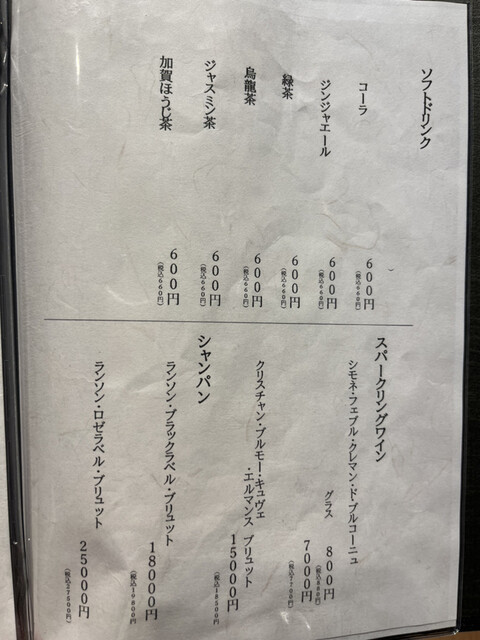 ソフトドリンク
コーラ
600円
(税込660円)
ジンジャエール
600円
(税込660円)
緑茶
600円
(税込660円)
烏龍茶
600円
(税込660円)
ジャスミン茶
600円
(税込660円)
加賀ほうじ茶
600円
(税込660円)
スパークリングワイン
シモネ・フェブル・クレマン・ド・ブルゴーニュ
グラス 800円
(税込880円)
7000円
(税込7700円)
クリスチャン・ブルモー・キュヴェ
・エルマンス ブリュット
15000円
(税込18500円)
シャンパン
ランソン・ブラックラベル・ブリュット
18000円
(税込19800円)
ランソン・ロゼラベル・ブリュット
25000円
(税込27500円)